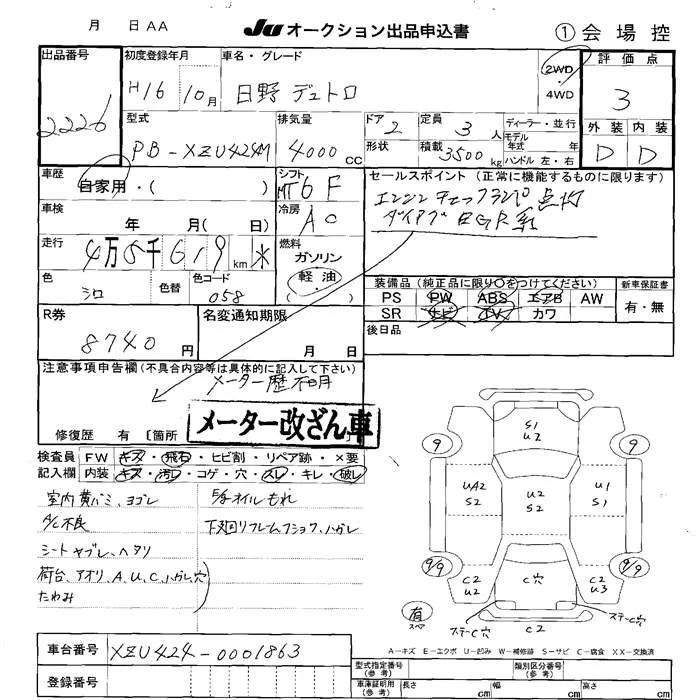 月 日 AA
JU オークション出品申込書
① 会場控
出品番号
2226
初度登録年月
H16 10月
車名・グレード
日野 デュトロ
2WD
・
4WD
評価点
3
外装 内装
D D
型式
PB-XZU424M
排気量
4000 cc
ドア
2
定員
3 人
形状
積載
3500 kg
ディーラー・並行
モデル
年式 年
ハンドル 左・右
車歴
自家用・( )
シフト
MT6F
セールスポイント (正常に機能するものに限ります)
エンジンチェックランプ点灯
ダイアグEGR系
車検
年 月( 日)
冷房
AC
走行
4万5千619 km *
燃料
ガソリン
・
軽油
( )
色
シロ
色替
色コード
058
装備品 (純正品に限り○をつけてください)
PS PW ABS エアB AW
SR ナビ TV カワ
新車保証書
有・無
後日品
R券
8740 円
名変通知期限
月 日
注意事項申告欄(不具合内容等は具体的に記入して下さい)
メーター歴不明
メーター改ざん車
修復歴 有 〔箇所 〕
検査員
記入欄
FW キズ・飛石・ヒビ割・リペア跡・×要
内装 キズ・汚れ・コゲ・穴・スレ・キレ・破レ
室内黄バミ、ヨゴレ
A/C不良
シートヤブレ、ヘタリ
荷台、アオリ、A、U、C、ハガレ、穴
たわみ
オイルもれ
下廻リフレーム
S1
U2
9
9
UA2
S2
U2
S2
U1
S1
9/9
9/9
C2
U2
C穴
C2
U3
有
スペア
ステーC穴
C2
ステーC穴
A-キズ E-エクボ U-凹み W-補修跡 S-サビ C-腐食 XX-交換済
車台番号
XZU424-0001863
登録番号
型式指定番号
(参考)
類別区分番号
(参考)
車庫証明用
(参考)
長さ cm
幅 cm
高さ cm